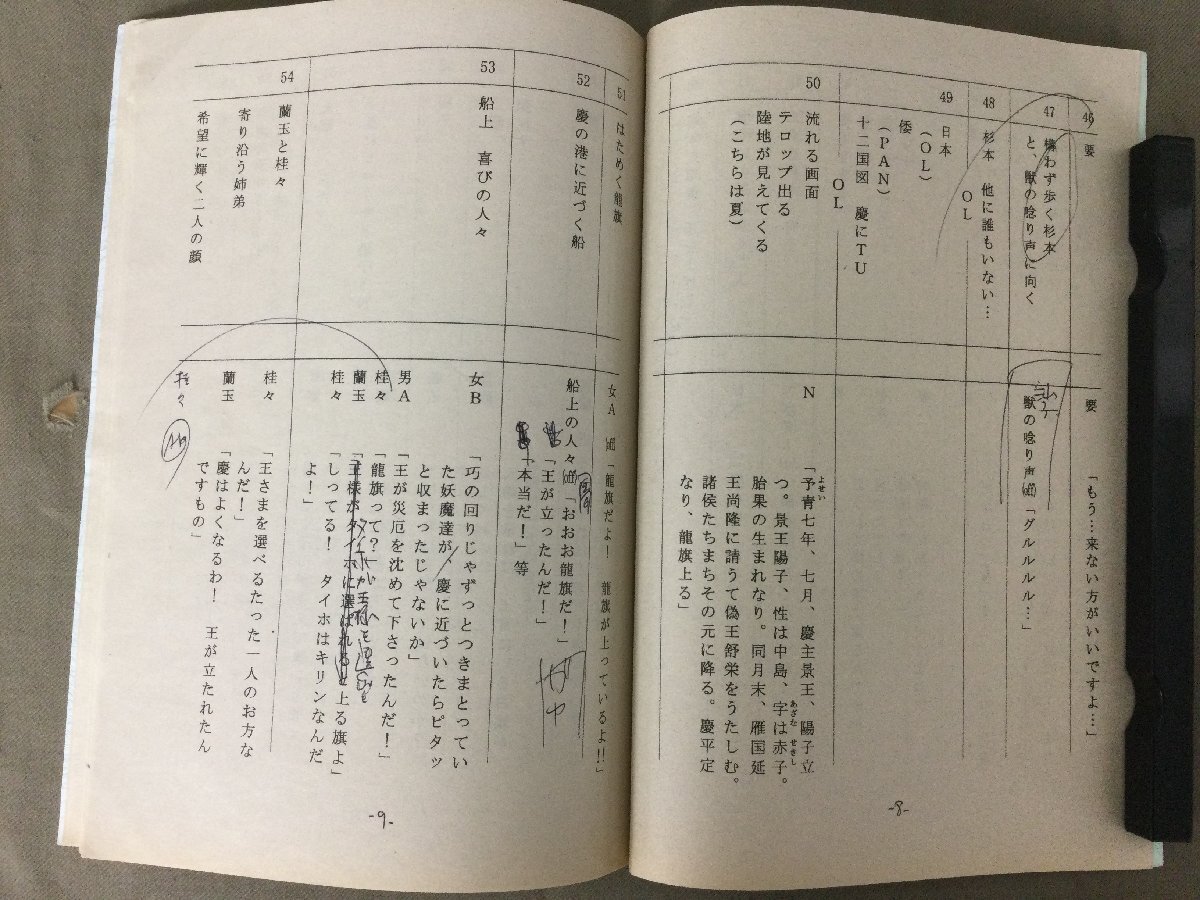 46
要
要
「もう…来ない方がいいですよ…」
47
構わず歩く杉本
と、獣の唸り声に向く
獣の唸り声㈺「グルルルル…」
48
杉本　他に誰もいない…
OL
49
日本
（OL）
倭
（PAN）
十二国図　慶にTU
OL
50
流れる画面
テロップ出る
陸地が見えてくる
（こちらは夏）
N
「予青七年、七月、慶主景王、陽子立
よせい
つ。景王陽子、性は中島、字は赤子。
あざな　せきし
胎果の生まれなり。同月末、雁国延
王尚隆に請うて偽王舒栄をうたしむ。
諸侯たちまちその元に降る。慶平定
なり、龍旗上る」
-8-
51
はためく龍旗
女A
「龍旗だよ！　龍旗が上っているよ!!」
52
慶の港に近づく船
船上の人々
「おおお龍旗だ！」
「王が立ったんだ！」
「本当だ！」等
53
船上　喜びの人々
女B
「巧の回りじゃずっとつきまとってい
た妖魔達が、慶に近づいたらピタッ
と収まったじゃないか」
男A
「王が災厄を沈めて下さったんだ！」
桂々
「龍旗って？」
蘭玉
「王様がタイホに選ばれると上る旗よ」
桂々
「しってる！　タイホはキリンなんだ
よ！」
54
蘭玉と桂々
寄り沿う姉弟
希望に輝く二人の顔
桂々
「王さまを選べるたった一人のお方な
んだ！」
蘭玉
「慶はよくなるわ！　王が立たれたん
ですもの」
桂々
-9-